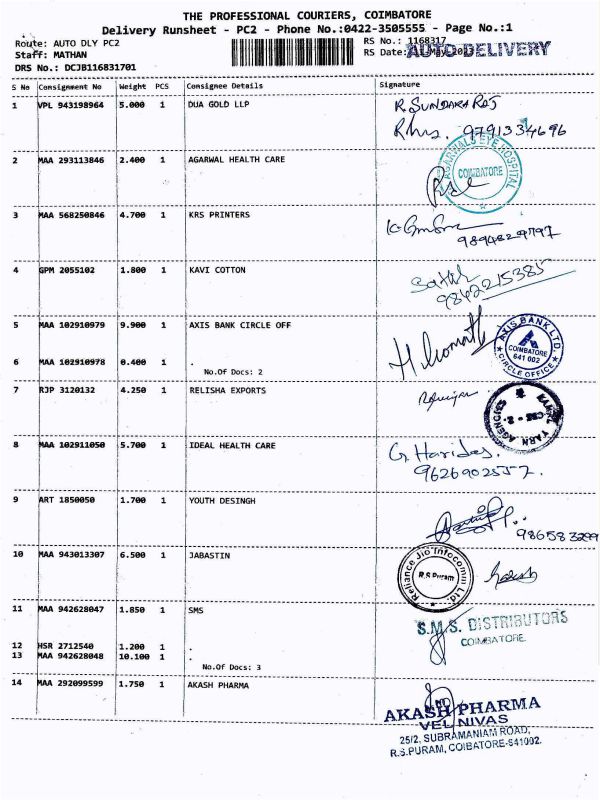 THE PROFESSIONAL COURIERS, COIMBATORE
Delivery Runsheet - PC2 - Phone No.:0422-3505555 - Page No.:1
Route: AUTO DLY PC2 RS No.: 1168317
Staff: MATHAN RS Date: May 2023 AUTO DELIVERY
DRS No.: DCJB116831701
S No Consignment No Weight PCS Consignee Details Signature
1 VPL 943198964 5.000 1 DUA GOLD LLP R. SUNDARA RAJ
9791334696
2 MAA 293113846 2.400 1 AGARWAL HEALTH CARE
AGARWALS EYE HOSPITAL COIMBATORE
3 MAA 568250846 4.700 1 KRS PRINTERS
9894829797
4 GPM 2055102 1.800 1 KAVI COTTON Satish
9842215385
5 MAA 102910979 9.900 1 AXIS BANK CIRCLE OFF
AXIS BANK LTD. COIMBATORE 641 002 CIRCLE OFFICE
6 MAA 102910978 0.400 1 .
No.Of Docs: 2
7 RJP 3120132 4.250 1 RELISHA EXPORTS
YARN AGENCIES CBE - 2.
8 MAA 102911050 5.700 1 IDEAL HEALTH CARE G. Haridas.
9626902557.
9 ART 1850050 1.700 1 YOUTH DESINGH
986583299
10 MAA 943013307 6.500 1 JABASTIN
Reliance Jio Infocomm Ltd. R.S Puram
11 MAA 942628047 1.850 1 SMS S.M.S. DISTRIBUTORS
COIMBATORE.
12 HSR 2712540 1.200 1 .
13 MAA 942628048 10.100 1 .
No.Of Docs: 3
14 MAA 292099599 1.750 1 AKASH PHARMA
AKASH PHARMA
VEL NIVAS
25/2, SUBRAMANIAM ROAD,
R.S.PURAM, COIBATORE-641002.